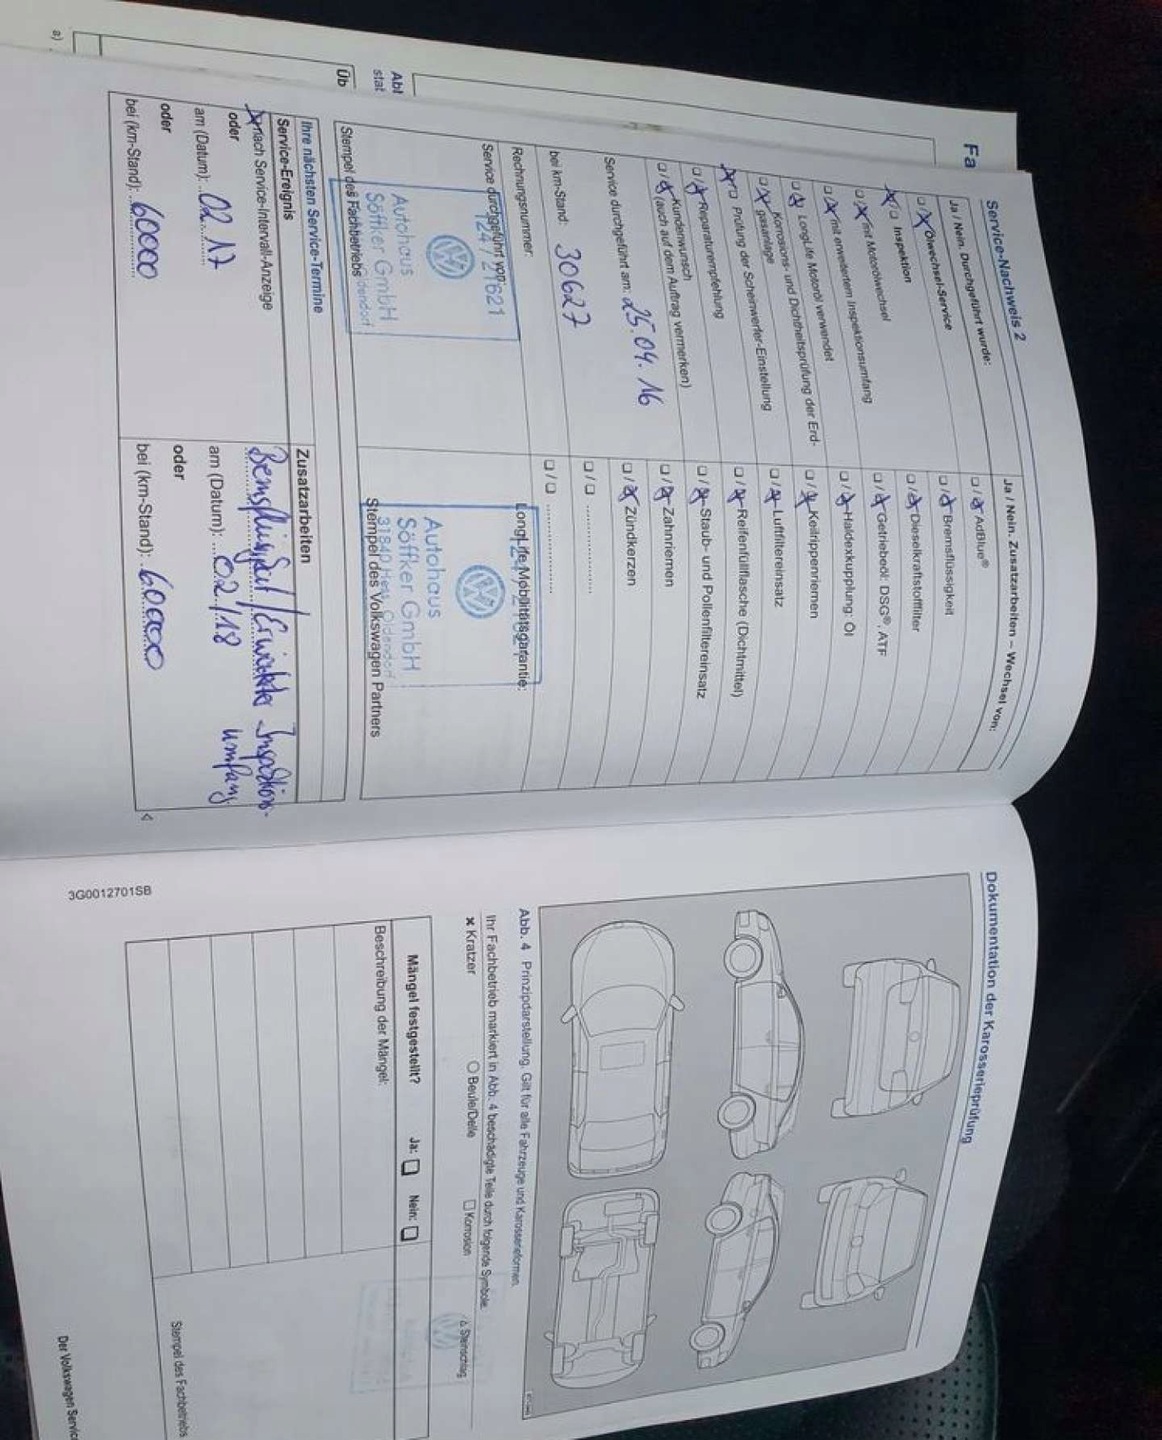 Fa
Abt
stat
Üb
a)
Service-Nachweis 2
Ja / Nein. Durchgeführt wurde:
Ölwechsel-Service
Inspektion
mit Motorölwechsel
mit erweitertem Inspektionsumfang
LongLife Motoröl verwendet
Korrosions- und Dichtheitsprüfung der Erd-
gasanlage
Prüfung der Scheinwerfer-Einstellung
Reparaturempfehlung
Kundenwunsch
(auch auf dem Auftrag vermerken)
Service durchgeführt am: 25.04.16
bei km-Stand: 30627
Rechnungsnummer:
Service durchgeführt von:
124 / 21621
Autohaus
Söffker GmbH
Oldendorf
Stempel des Fachbetriebs
Ja / Nein. Zusatzarbeiten – Wechsel von:
AdBlue®
Bremsflüssigkeit
Dieselkraftstofffilter
Getriebeöl: DSG®, ATF
Haldexkupplung: Öl
Keilrippenriemen
Luftfiltereinsatz
Reifenfüllflasche (Dichtmittel)
Staub- und Pollenfiltereinsatz
Zahnriemen
Zündkerzen
LongLife Mobilitätsgarantie:
Autohaus
Söffker GmbH
31840 Hess. Oldendorf
Stempel des Volkswagen Partners
Ihre nächsten Service-Termine
Service-Ereignis
nach Service-Intervall-Anzeige
oder
am (Datum): 02.17
oder
bei (km-Stand): 60000
Zusatzarbeiten
Bremsflüssigkeit / Erweiterter Inspektions-
umfang
am (Datum): 02/18
oder
bei (km-Stand): 60.000
Dokumentation der Karosserieprüfung
Abb. 4 Prinzipdarstellung. Gilt für alle Fahrzeuge und Karosserieformen.
Ihr Fachbetrieb markiert in Abb. 4 beschädigte Teile durch folgende Symbole:
× Kratzer
○ Beule/Delle
□ Korrosion
△ Steinschlag
Mängel festgestellt? Ja: Nein:
Beschreibung der Mängel:
Stempel des Fachbetriebs
3G0012701SB
Der Volkswagen Service